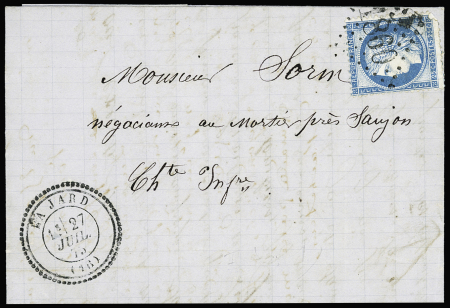 Monsieur Sorin
négociant au Mortier près Saujon
Chte Infre
LA JARD
27
JUIL.
75
(16)